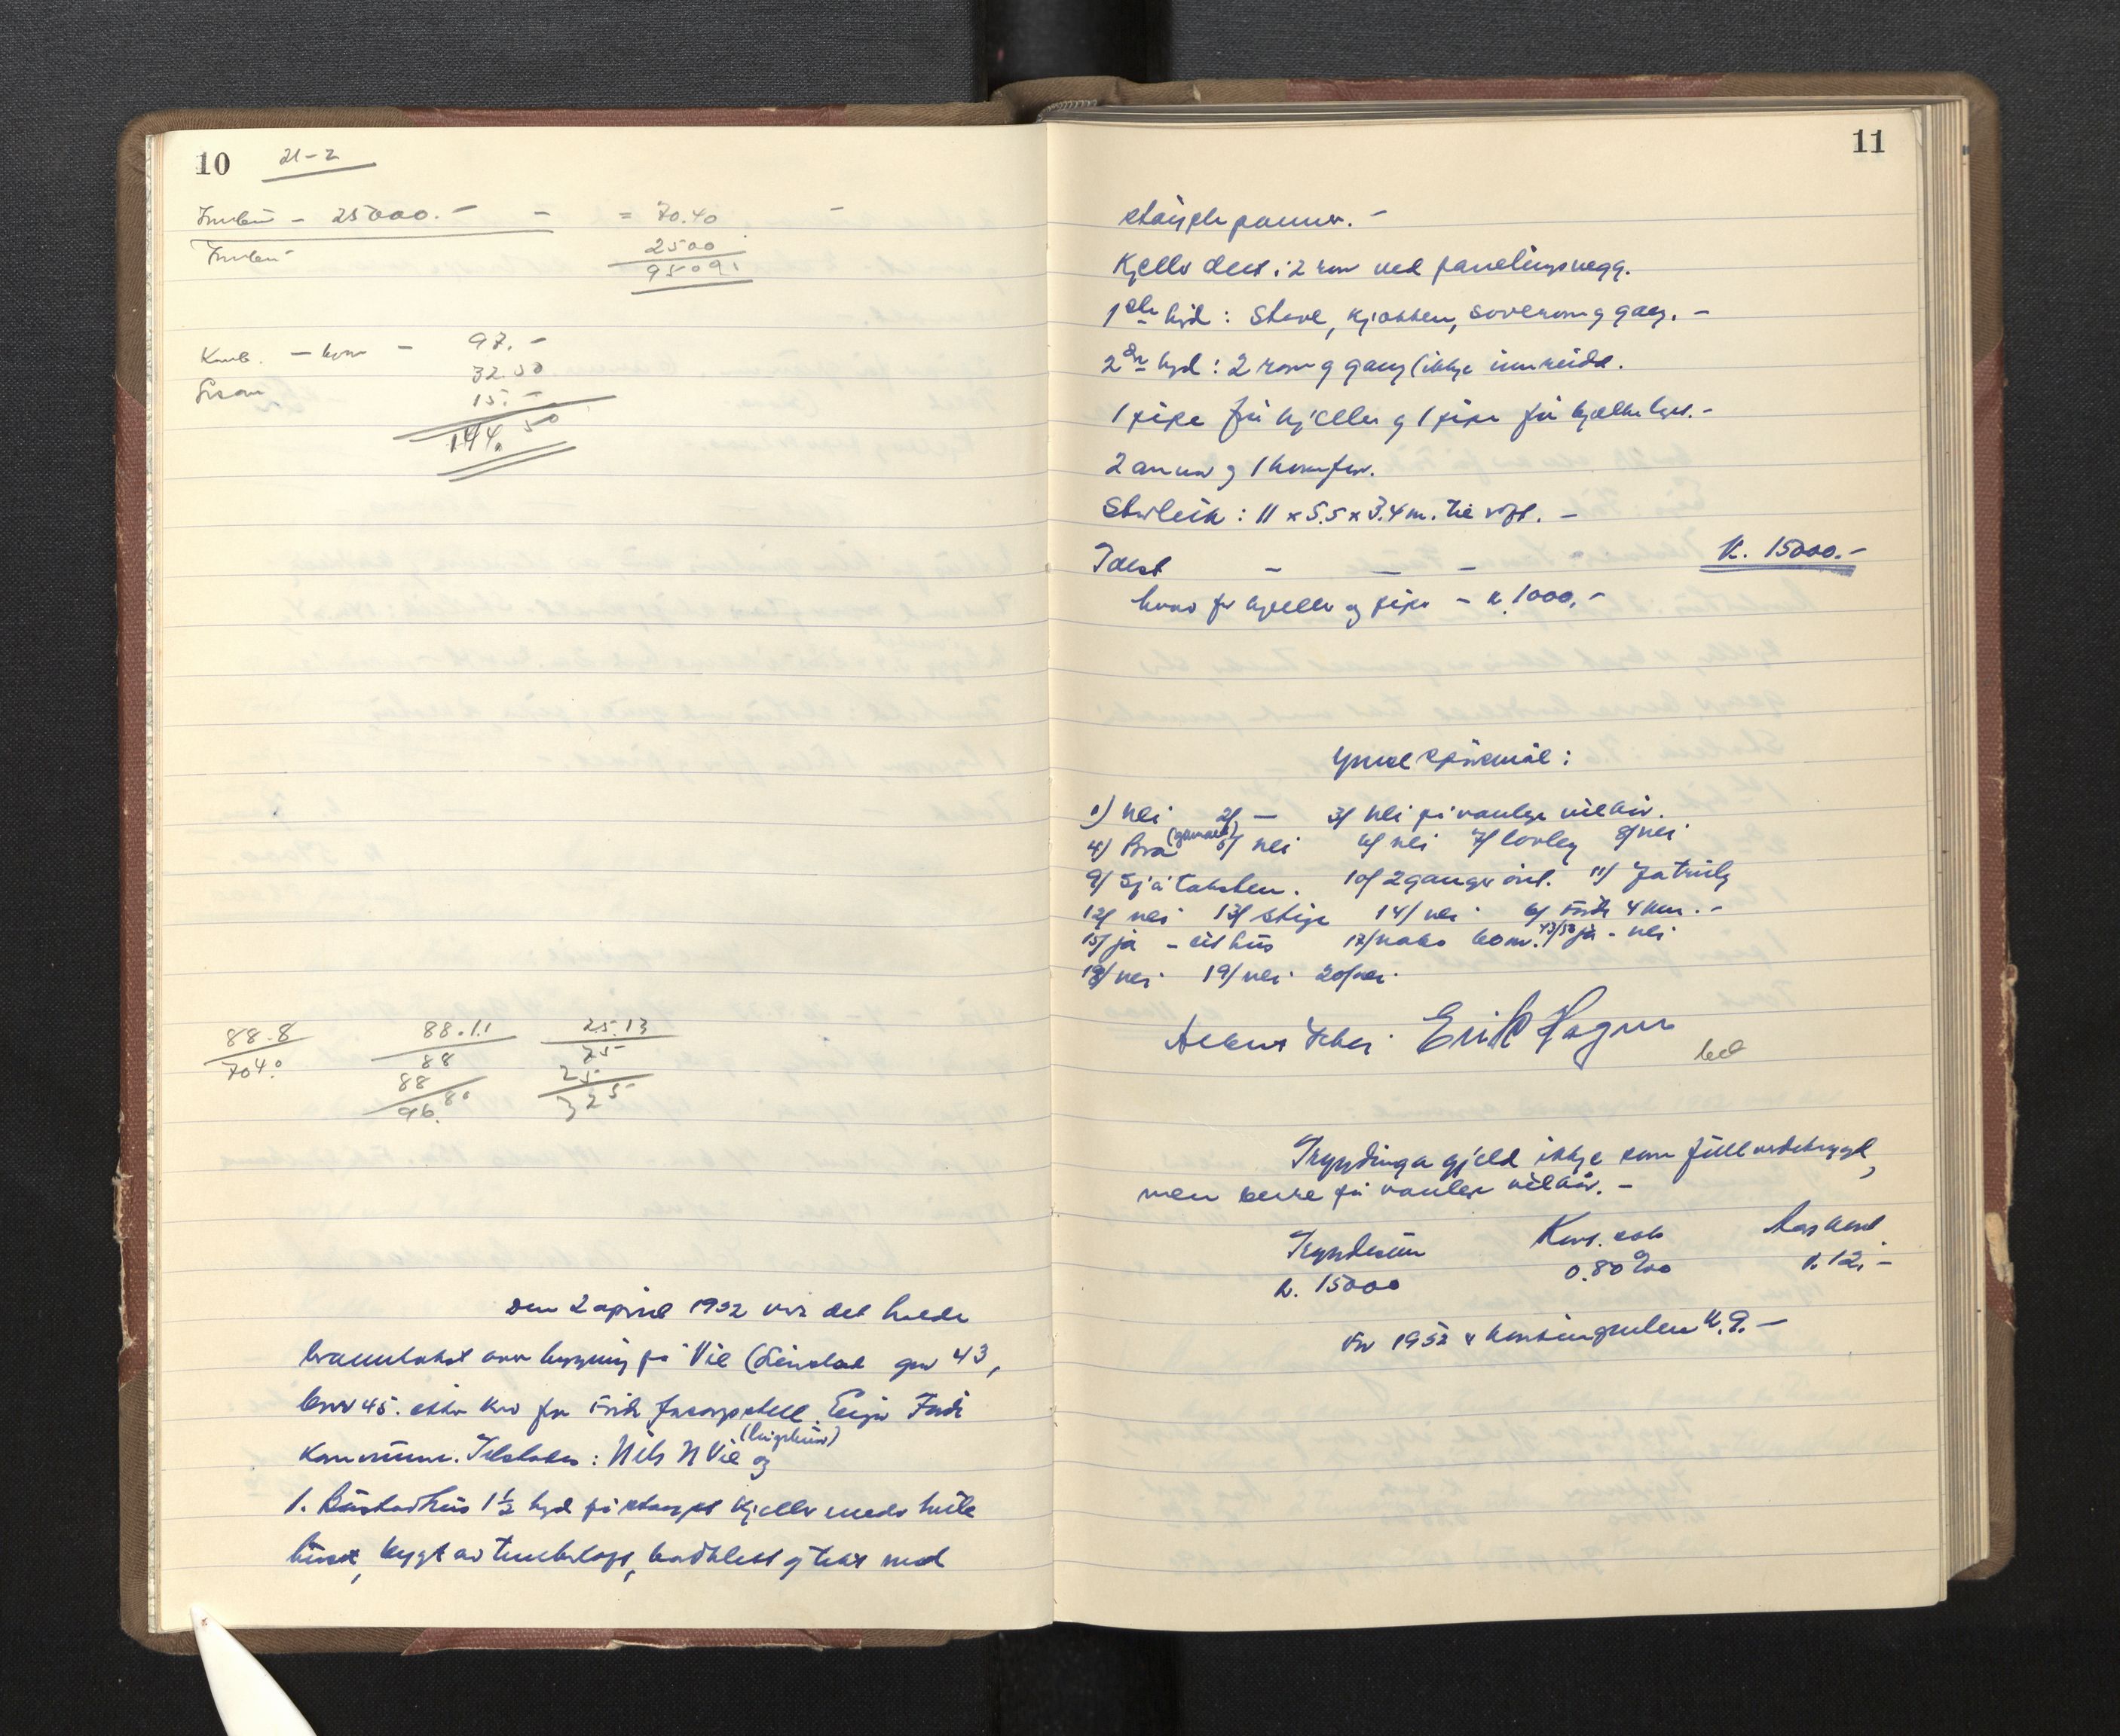 10
21-2
Innbu - 25000.- - = 70.40 -
2500
9509
Innbu
Kont. - kom - 97.-
32.50
15.-
144.50
88.8
7040
88.11
88
88
96.80
25.13
75
25
325
Den 2 april 1952 var det halde
branntakst over bygning på Vie (Leirslad gnr 43,
bnr 45. etter krav frå Førde forsorgsstell. Eigar Førde
kommune. Tilstades: Nils N Vie og
1. Bustadhus 1½ høgd på støypt kjellar under heile
huset, bygt av timberlaft, bordkledt og tekt med
11
støypte panner. -
Kjellar delt i 2 rom med panelingsvegg.
1ste høgd: Stove, kjøkken, soverom og gang. -
2dre høgd: 2 rom og gang (ikkje innreidd.
1 pipe frå kjellar og 1 pipe frå bjelkelget. -
2 omnar og 1 komfyr.
Storleik: 11 x 5.5 x 3.4 m. til røft. -
Takst - - - kr. 15000.-
herav for kjellar og pipe - kr. 1000,-
Ymse spørsmål:
1) nei 2/ - 3/ Nei på vanlege vilkår.
4) Bra (gamalt) 5/ nei 6/ nei 7/ lovleg 8/ nei
9/ Sjå taksten. 10/ 2 gangar årl. 11/ Ja truleg
12/ nei 13/ stige 14/ nei 6/ Førde 4 km. -
15/ ja - eit hus 17/ nabo bnr. 43/50 ja - nei
18/ nei 19/ nei 20/ nei.
Erik Hagen
Trygdinga gjeld ikkje som fullverdetrygd,
men berre på vanlege vilkår. -
Trygdesum
kr. 15000
Kl. 0.80 ‰
kr. 12,-
For 1952 er kontingenten kr. 9.-